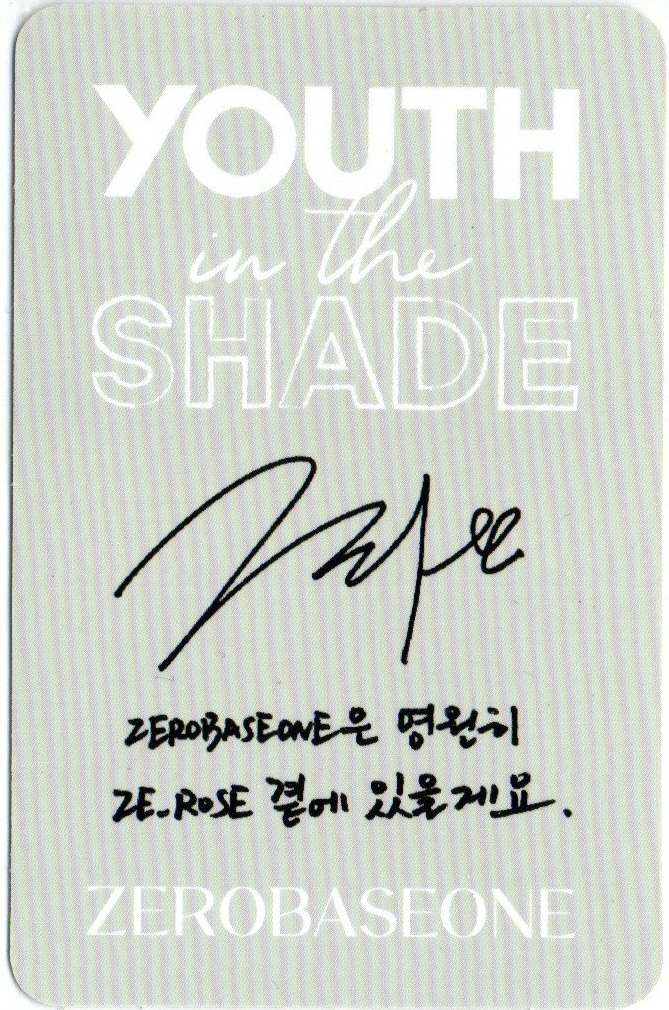 YOUTH
in the
SHADE
ZEROBASEONE은 영원히
ZE_ROSE 곁에 있을게요.
ZEROBASEONE